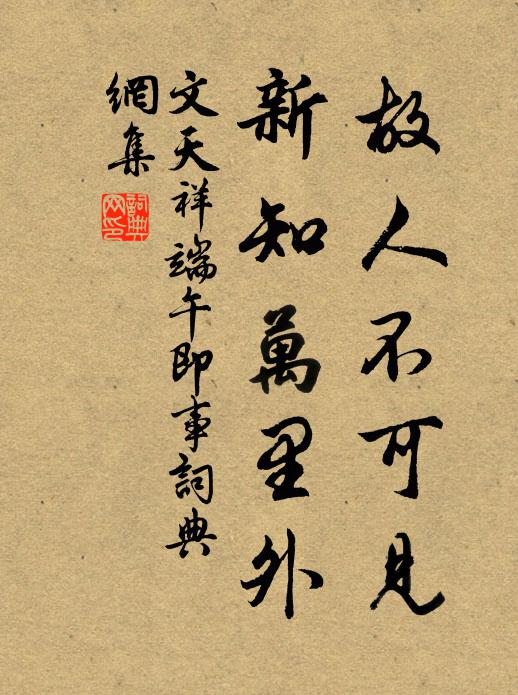 故人不可見
新知萬里外
文天祥端午即事詞典
網集
詞典网印